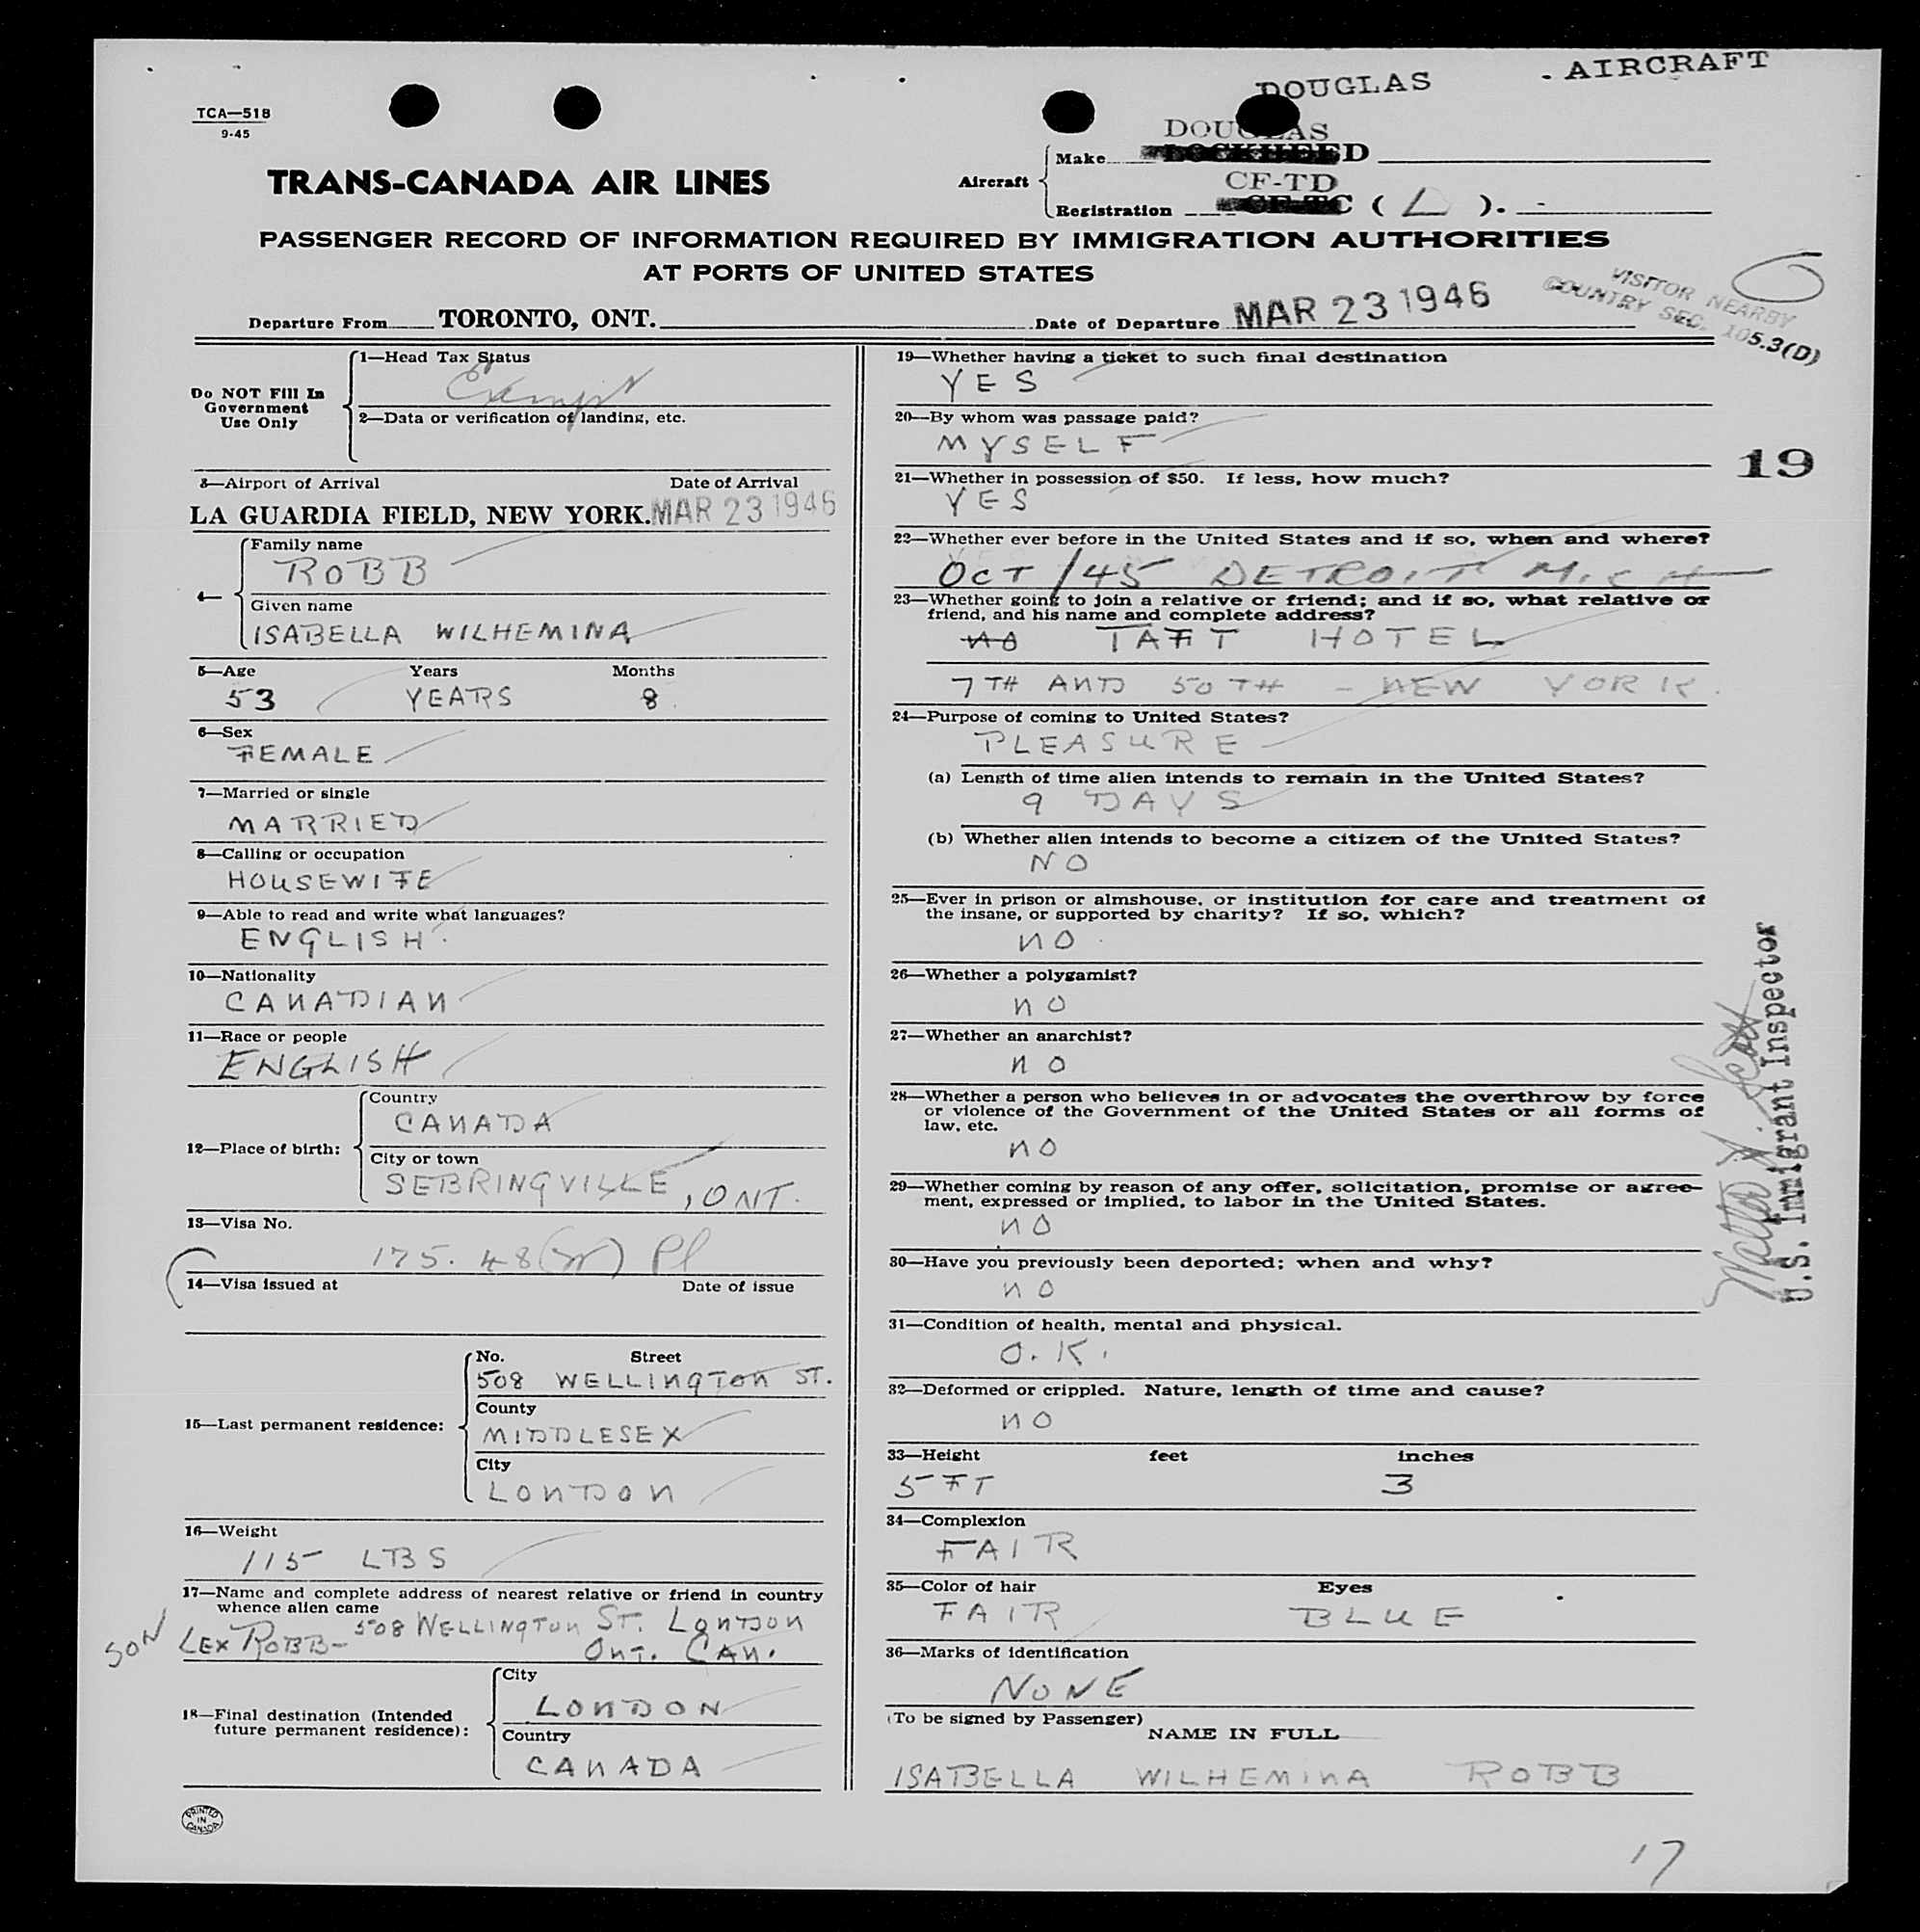 DOUGLAS - AIRCRAFT
TCA—518
9-45
DOUGLAS
Make LOCKHEED
TRANS-CANADA AIR LINES
Aircraft
CF-TD
Registration CF-TC ( L ).
PASSENGER RECORD OF INFORMATION REQUIRED BY IMMIGRATION AUTHORITIES
AT PORTS OF UNITED STATES
VISITOR NEARBY
COUNTRY SEC. 105.3(D)
Departure From TORONTO, ONT. Date of Departure MAR 23 1946
Do NOT Fill In
Government
Use Only
1—Head Tax Status
Exempt
2—Data or verification of landing, etc.
3—Airport of Arrival Date of Arrival
LA GUARDIA FIELD, NEW YORK. MAR 23 1946
4—
Family name
ROBB
Given name
ISABELLA WILHEMINA
5—Age Years Months
53 YEARS 8
6—Sex
FEMALE
7—Married or single
MARRIED
8—Calling or occupation
HOUSEWIFE
9—Able to read and write what languages?
ENGLISH
10—Nationality
CANADIAN
11—Race or people
ENGLISH
12—Place of birth:
Country
CANADA
City or town
SEBRINGVILLE, ONT.
13—Visa No.
175.48
14—Visa issued at Date of issue
15—Last permanent residence:
No. Street
508 WELLINGTON ST.
County
MIDDLESEX
City
LONDON
16—Weight
115 LBS
17—Name and complete address of nearest relative or friend in country
whence alien came
SON LEX ROBB- 508 WELLINGTON ST. LONDON
ONT. CAN.
18—Final destination (Intended
future permanent residence):
City
LONDON
Country
CANADA
PRINTED
IN
CANADA
19—Whether having a ticket to such final destination
YES
20—By whom was passage paid?
MYSELF
19
21—Whether in possession of $50. If less, how much?
YES
22—Whether ever before in the United States and if so, when and where?
OCT/45 DETROIT MICH
23—Whether going to join a relative or friend; and if so, what relative or
friend, and his name and complete address?
NO TAFT HOTEL
7TH AND 50TH - NEW YORK.
24—Purpose of coming to United States?
PLEASURE
(a) Length of time alien intends to remain in the United States?
9 DAYS
(b) Whether alien intends to become a citizen of the United States?
NO
25—Ever in prison or almshouse, or institution for care and treatment of
the insane, or supported by charity? If so, which?
NO
26—Whether a polygamist?
NO
27—Whether an anarchist?
NO
28—Whether a person who believes in or advocates the overthrow by force
or violence of the Government of the United States or all forms of
law, etc.
NO
29—Whether coming by reason of any offer, solicitation, promise or agree-
ment, expressed or implied, to labor in the United States.
NO
30—Have you previously been deported; when and why?
NO
31—Condition of health, mental and physical.
O.K.
32—Deformed or crippled. Nature, length of time and cause?
NO
33—Height feet inches
5 FT 3
34—Complexion
FAIR
35—Color of hair Eyes
FAIR BLUE
36—Marks of identification
NONE
(To be signed by Passenger)
NAME IN FULL
ISABELLA WILHEMINA ROBB
U.S. Immigrant Inspector
17